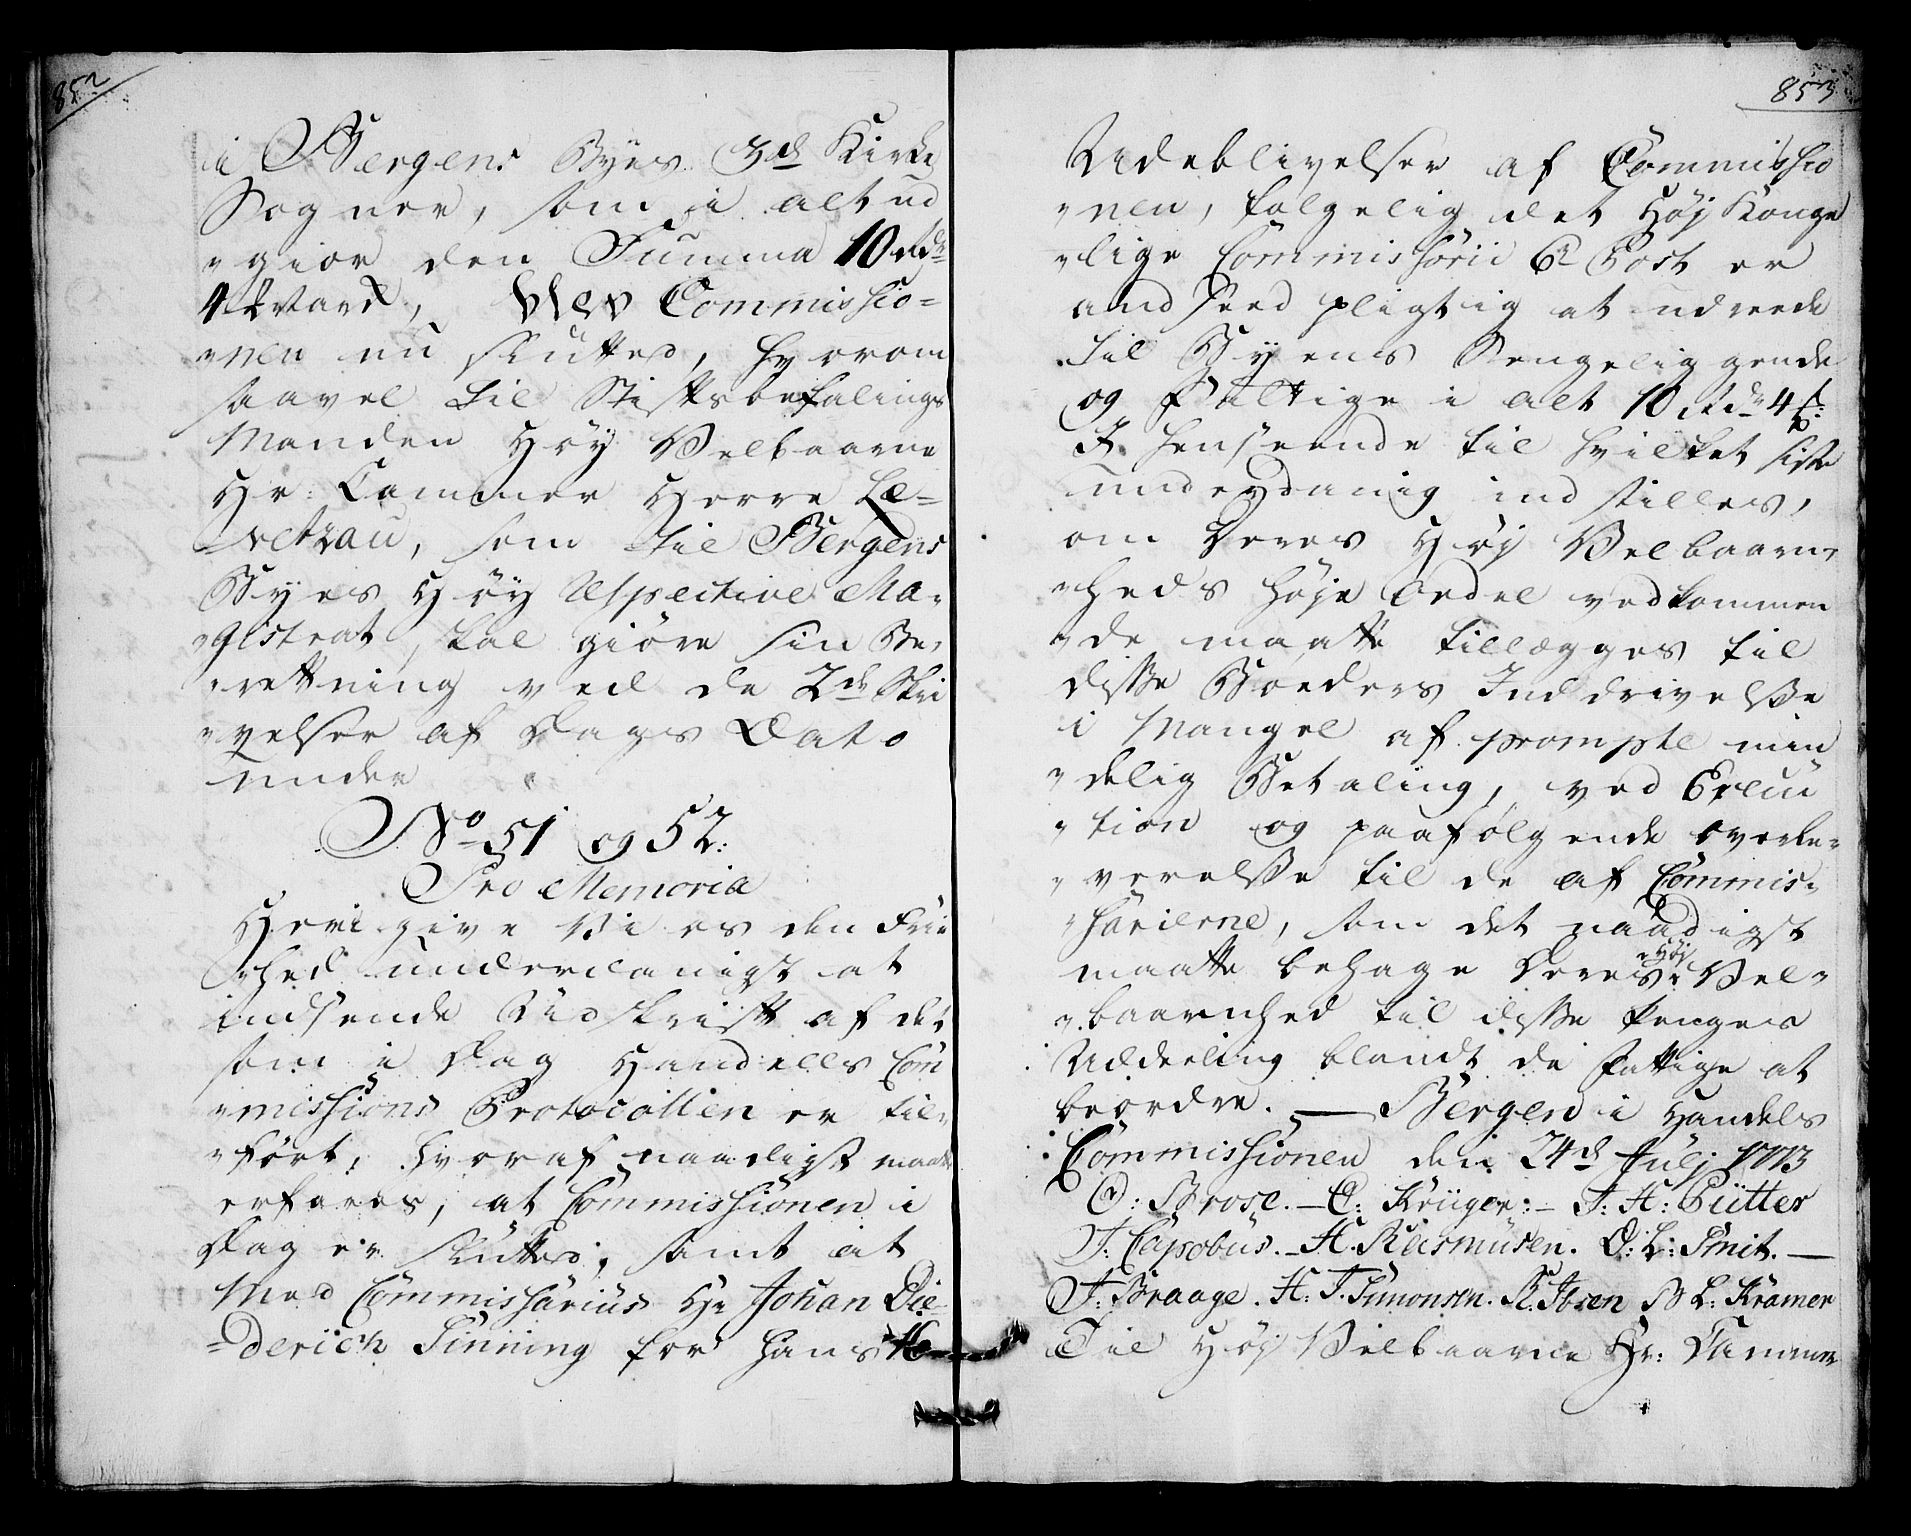 852
i Bergens Byes 3de Kirke
Sogner, som i alt ud
"giør den Summa 10 Rdr
4 Mark, blev Commissio=
"nen nu slutted, hvorom
saavel til Stiftsbefalings
Manden Høy Velbaarne
Hr: Cammer Herre Le=
vetzau, som til Bergens
Byes Høy Respective Ma-
"gistrat, skal giøre sin Be,
"rettning ved de 2de Skri
"velser af Dags Dato
under
No 51 og 52:
Pro Memoria
Heri give Vi os den Frii
"hed underdanigst at
indsende Udskrift af det
som i Dag Handells Com
"missions Protocollen er til-
"ført, hvoraf naadigst maatte
erfares, at Commissionen i
Dag er sluttes, samt at
Med Commissarius Hr Johan Die-
=derich Finning for hans
853
Udeblivelser af Commissio
"nen, følgelig det Høj Konge
"lige Commissorii 6te Post er
andseed pligtig at udreede
til Byens Sengeliggende
og Fattige i alt 10 Rdr 4 ß:
I henseende til hvilket siste
underdanig indstilles,
om Deres Høj Velbaarn,
"heds høje Ordre vedkommen
"de maatte tillægges til
disse Bøeders Inddrivelse
i Mangel af prompte min
"delig Betaling, ved Execu
"tion og paafølgende overle-
"verelse til de af Commis-
"sarierne, som det naadigst
maatte behage Deres Høj Vel-
"baarnhed til disse penges
Uddeeling blandt de Fattige at
beordre. — Bergen i Handels
Commissionen den 24de Julj 1773
O: Brose. — C: Krüger: — J: H: Pütter
J: Capobus. — H. Rasmusen. O: L: Smit. —
J: Braage. H: T. Simonsen. R. Ibsen B L: Kramer
Til Høj Velbaarne Hr: Cammer